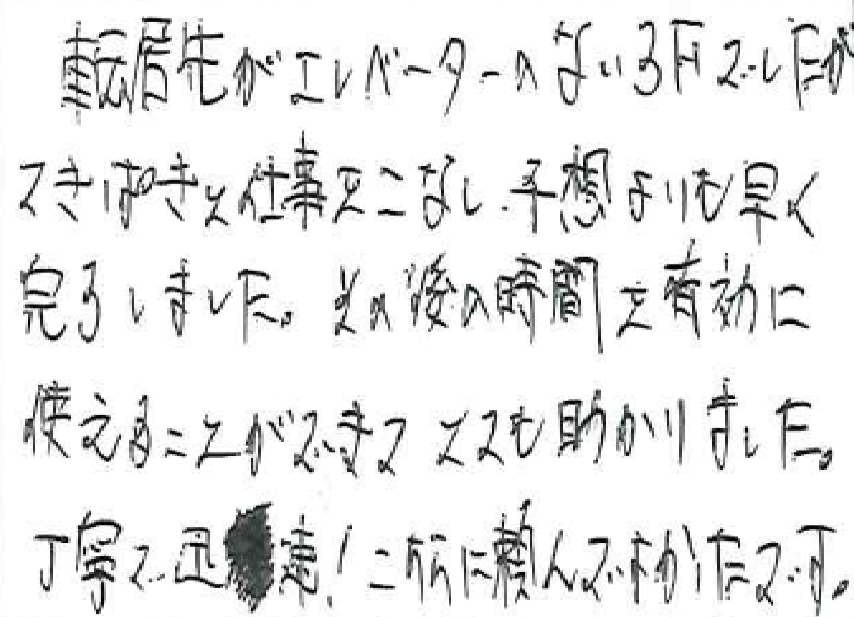 転居先がエレベーターのない3Fでしたが
てきぱきと仕事をこなし予想よりも早く
完了しました。その後の時間を有効に
使えることができてとても助かりました。
丁寧で迅速!に頼んでよかったです。